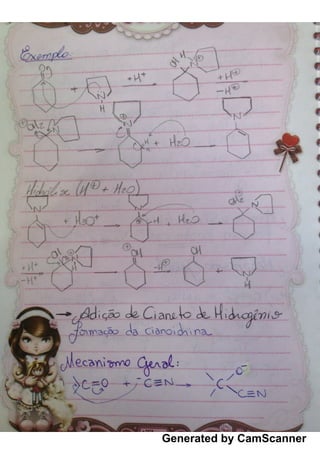 Exemplo:
+ H⊕
- H⊕
+ H2O
Hidrólise (H⊕ + H2O)
+ H3O+
+ H2O
+ H+
- H+
→ Adição de Cianeto de Hidrogênio
formação da cianoidrina
Mecanismo Geral:
C=O + -C≡N → C O- C≡N
Generated by CamScanner